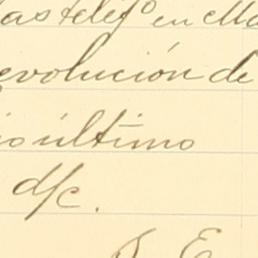 as teleg° en Ma
evolución de
io último
d/c.
R. E